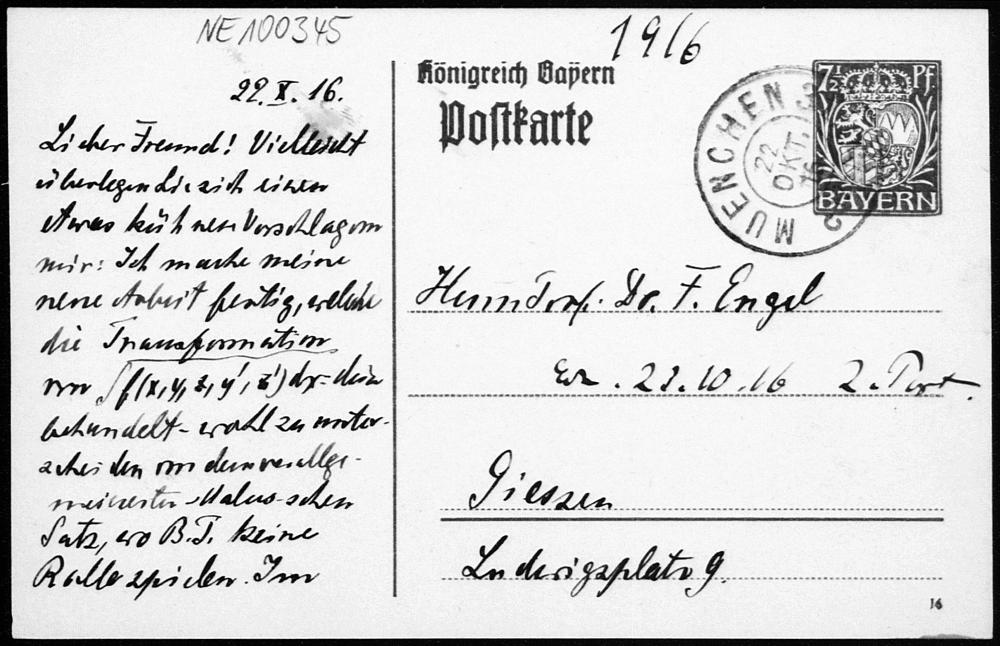 NE100345
1916
22.X.16.
Lieber Freund! Vielleicht
überlegen Sie sich einen
etwas kühnen Vorschlag von
mir: Ich mache meine
neue Arbeit fertig, welche
die Transformation
von ∫f(x,y,z,y',z')dx = 
behandelt - wohl zu unter-
scheiden von dem verallge-
meinerten Malus-schen
Satz, wo B.T. keine
Rolle spielen. Im
Königreich Bayern
Postkarte
MUENCHEN 32
22
OKT.
7½ Pf.
BAYERN
Herrn Prof. Dr. F. Engel
23.10.16 2. Port.
Giessen
Ludwigsplatz 9.
16